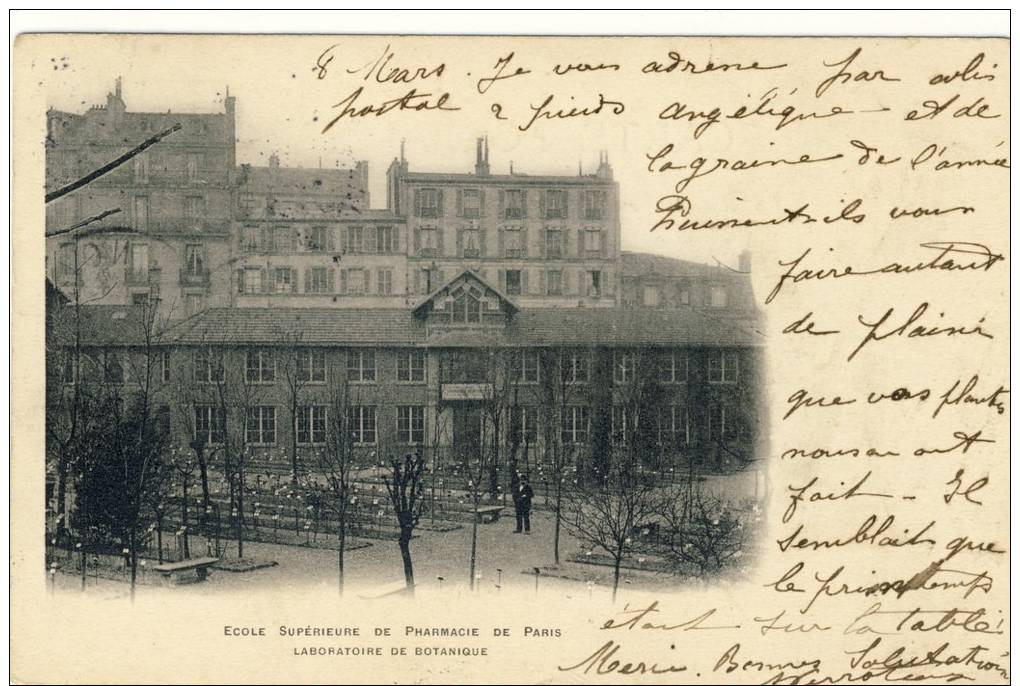 8 Mars. Je vous adresse par colis
postal 2 pieds angélique et de
la graine de l'année
Puissent-ils vous
faire autant
de plaisir
que vos plantes
nous en ont
fait - Il
semblait que
le printemps
était sur la table
Merci. Bonnes Salutations
ECOLE SUPÉRIEURE DE PHARMACIE DE PARIS
LABORATOIRE DE BOTANIQUE